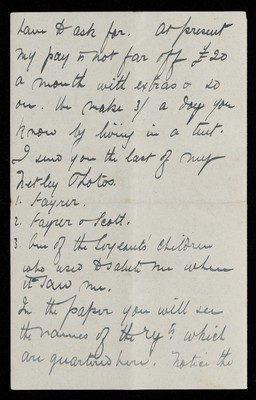 have to ask for. At present
my pay is not far off £20
a month with extras & so
on. We make 3/ a day you
know by living in a tent.
I send you the last of my
Netley Photos.
1. Fayrer.
2. Fayrer & Scott.
3. One of the Sergeants' children
who used to salute me when
it saw me.
In the paper you will see
the names of the regts which
are quartered here. Notice the